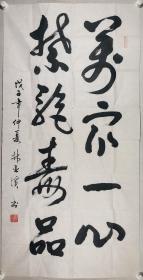 万众一心
禁绝毒品
戊子年仲夏
书